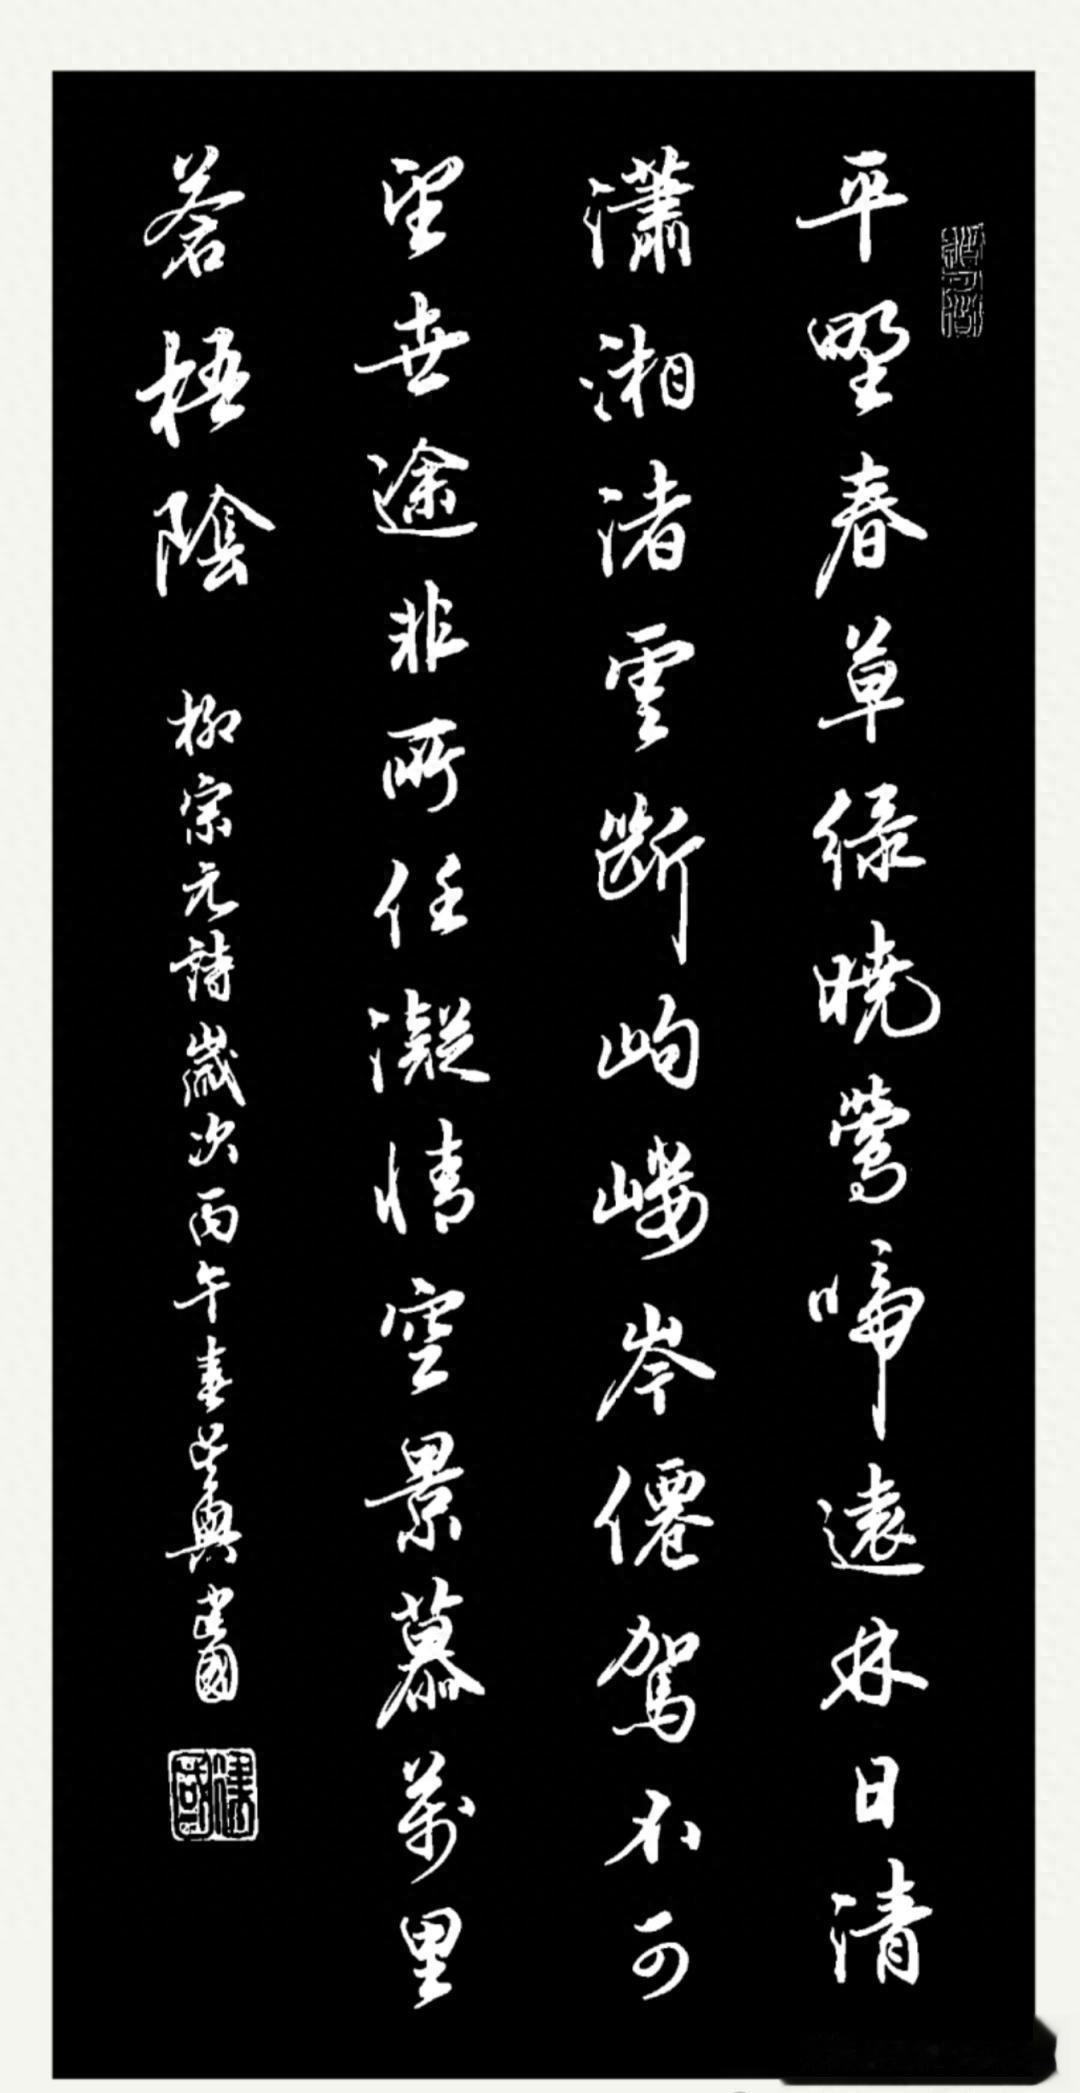 平野春草绿晓莺啼远林日清
潇湘渚云断岣嵝岑仙驾不可
望世途非所任凝情空景慕万里
苍梧阴
柳宗元诗岁次丙午春吴兴建国
建国